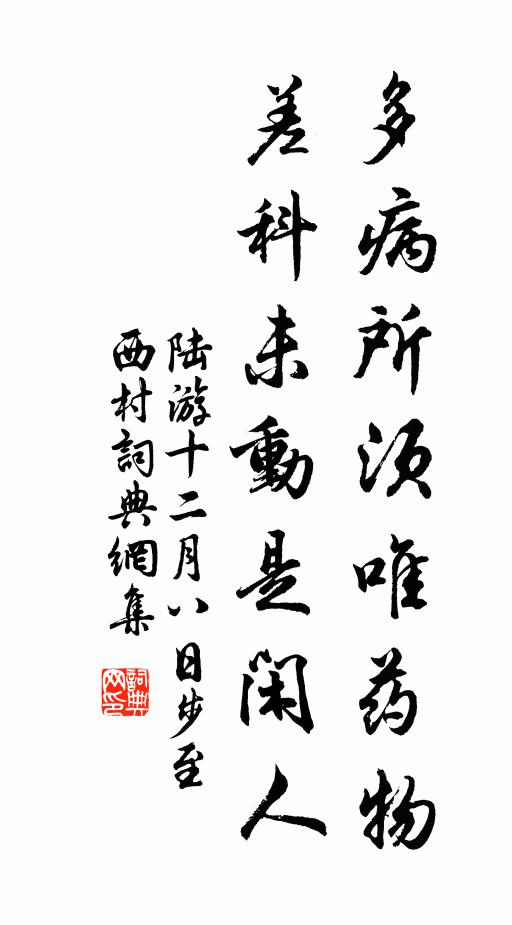 多病所须唯药物
差科未動是閑人
陆游十二月八日步至
西村詞典網集
詞典
网印